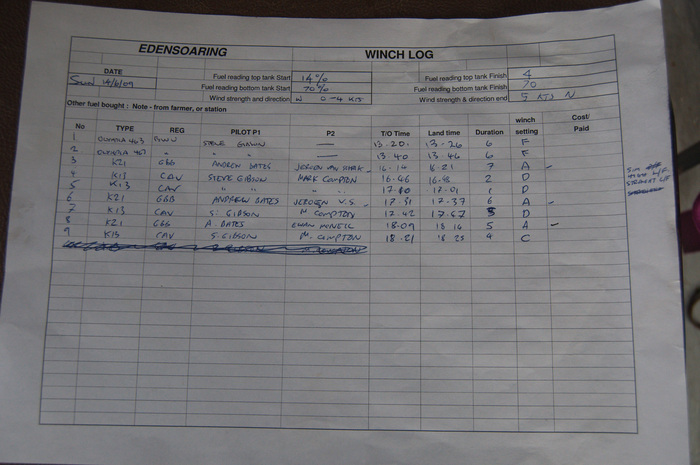 EDENSOARING WINCH LOG
DATE Fuel reading top tank Start 14% Fuel reading top tank Finish 4
Sun 14/6/09 Fuel reading bottom tank Start 70% Fuel reading bottom tank Finish 70
Wind strength and direction W 0-4 KTS Wind strength & direction end 5 KTS N
Other fuel bought : Note - from farmer, or station
No TYPE REG PILOT P1 P2 T/O Time Land time Duration winch setting Cost/ Paid
1 463 STEVE GIBSON — 13.20 13.26 6 F
2 " " — 13 40 13 46 6 F
3 K21 GBB ANDREW BATES JEROEN VAN 16.14 16.21 7 A -
4 K13 CAV STEVE GIBSON MARK COMPTON 16.46 16.48 2 D
5 K13 CAV " " " " 17.00 17.01 1 D
6 K21 GBB ANDREW BATES JEROEN V.S. 17.31 17.37 6 A -
7 K13 CAV S. GIBSON M COMPTON 17.42 17.47 5 D
8 K21 GBB A. BATES EWAN McNEIL 18.09 18 14 5 A -
9 K13 CAV S. GIBSON M. COMPTON 18.21 18 25 4 C